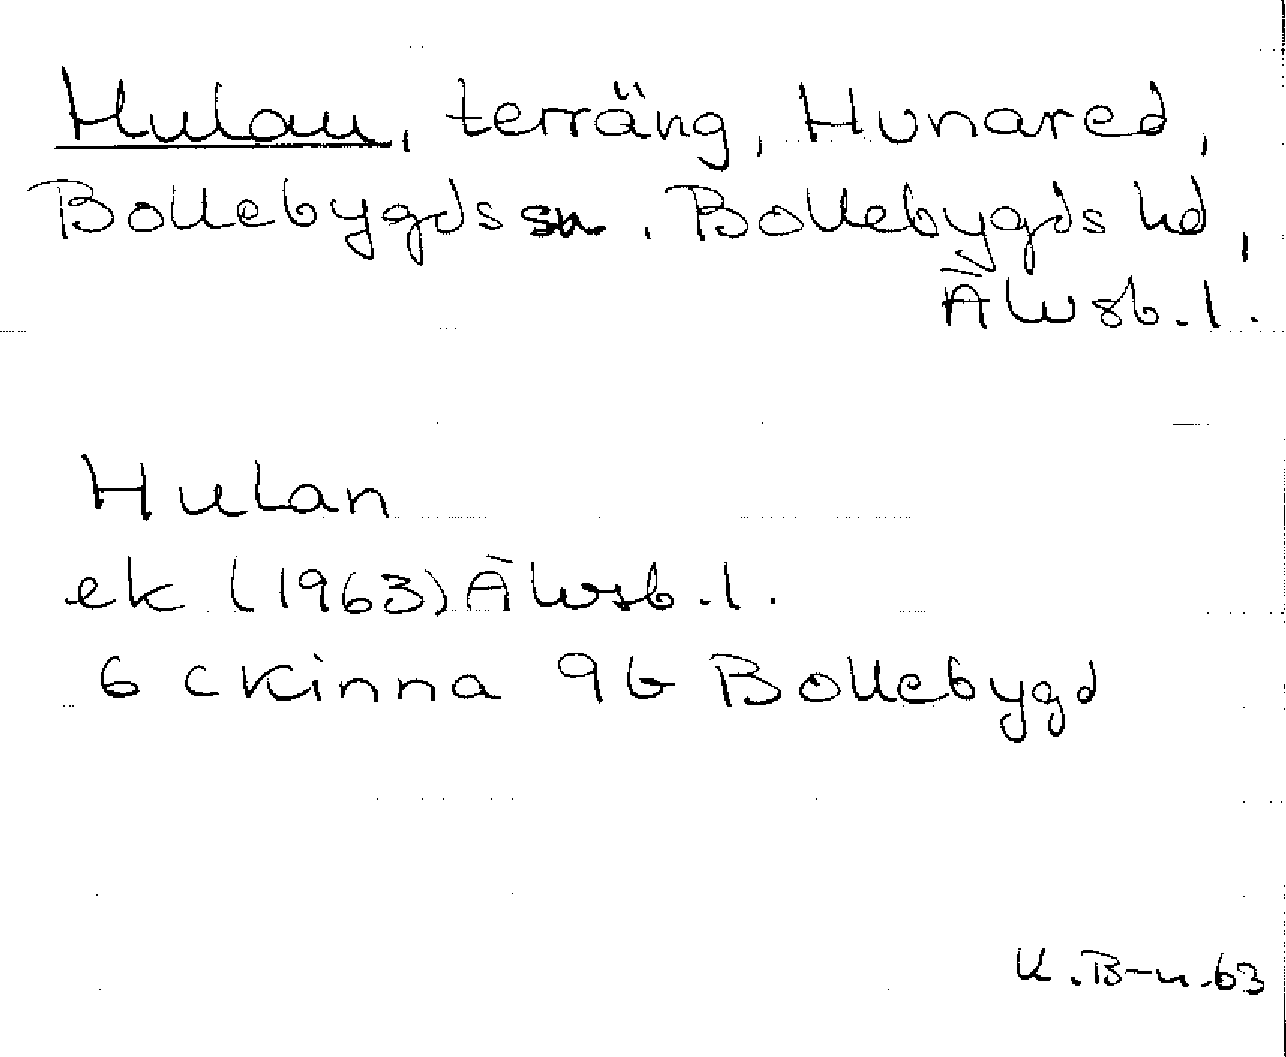 Hulan, terräng, Hunared,
Bollebygds sn. Bollebygds hd,
Älvsb. l.
Hulan
ek (1963) Älvsb. l.
6 c Kinna 9 b Bollebygd
K. B-n. 63